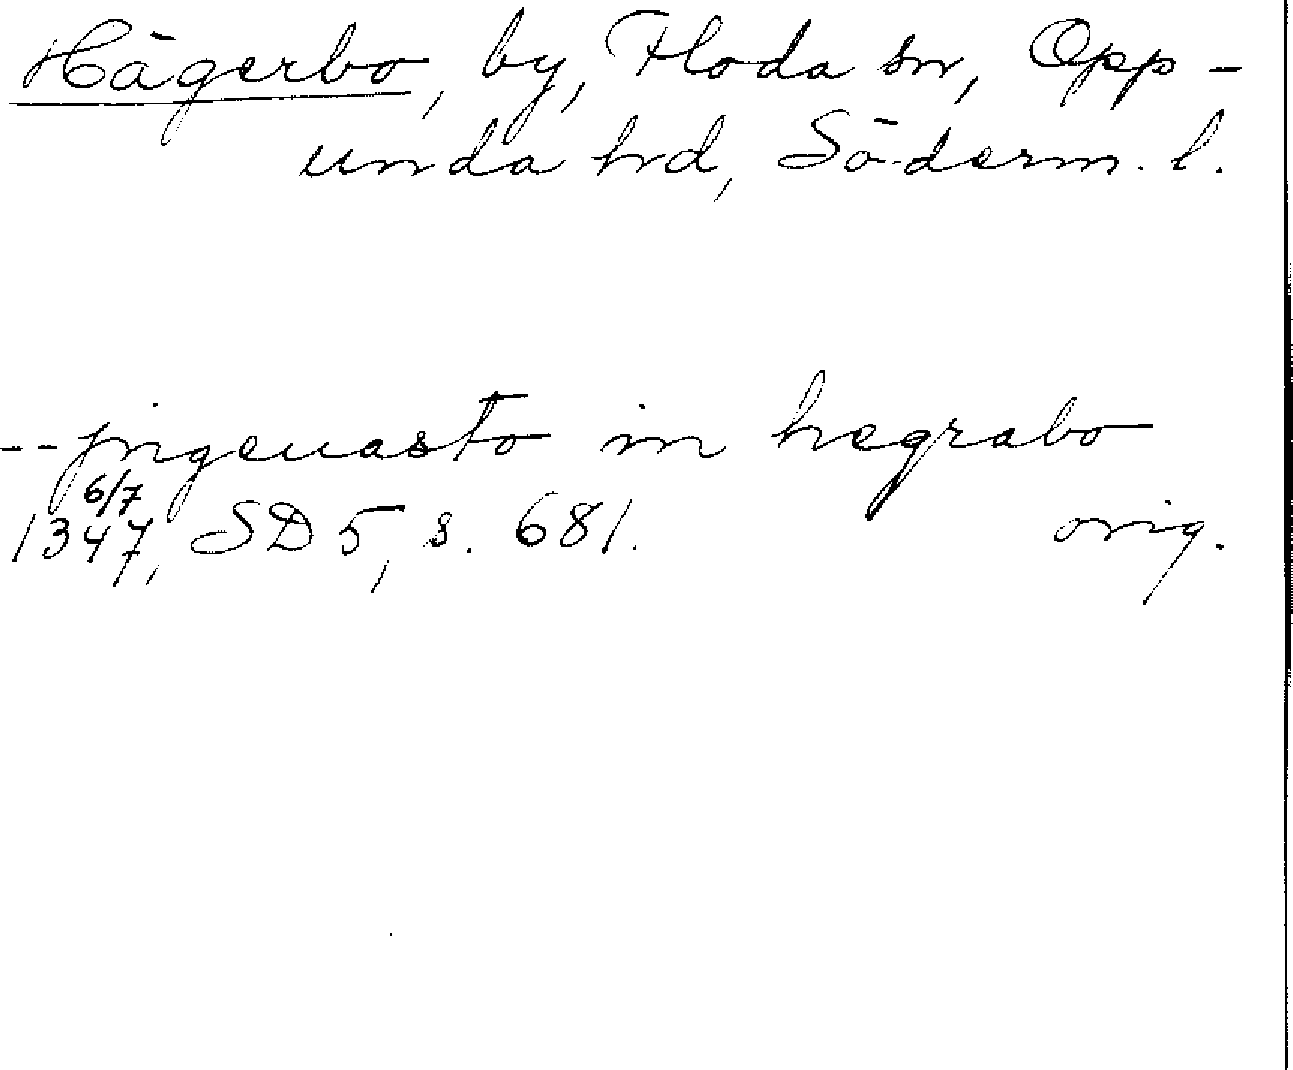 Hägerbo, by, Floda sn, Opp-
unda hd, Söderm. l.
-- jngeuasto in hegrabo
6/7
1347, SD 5, s. 681. orig.